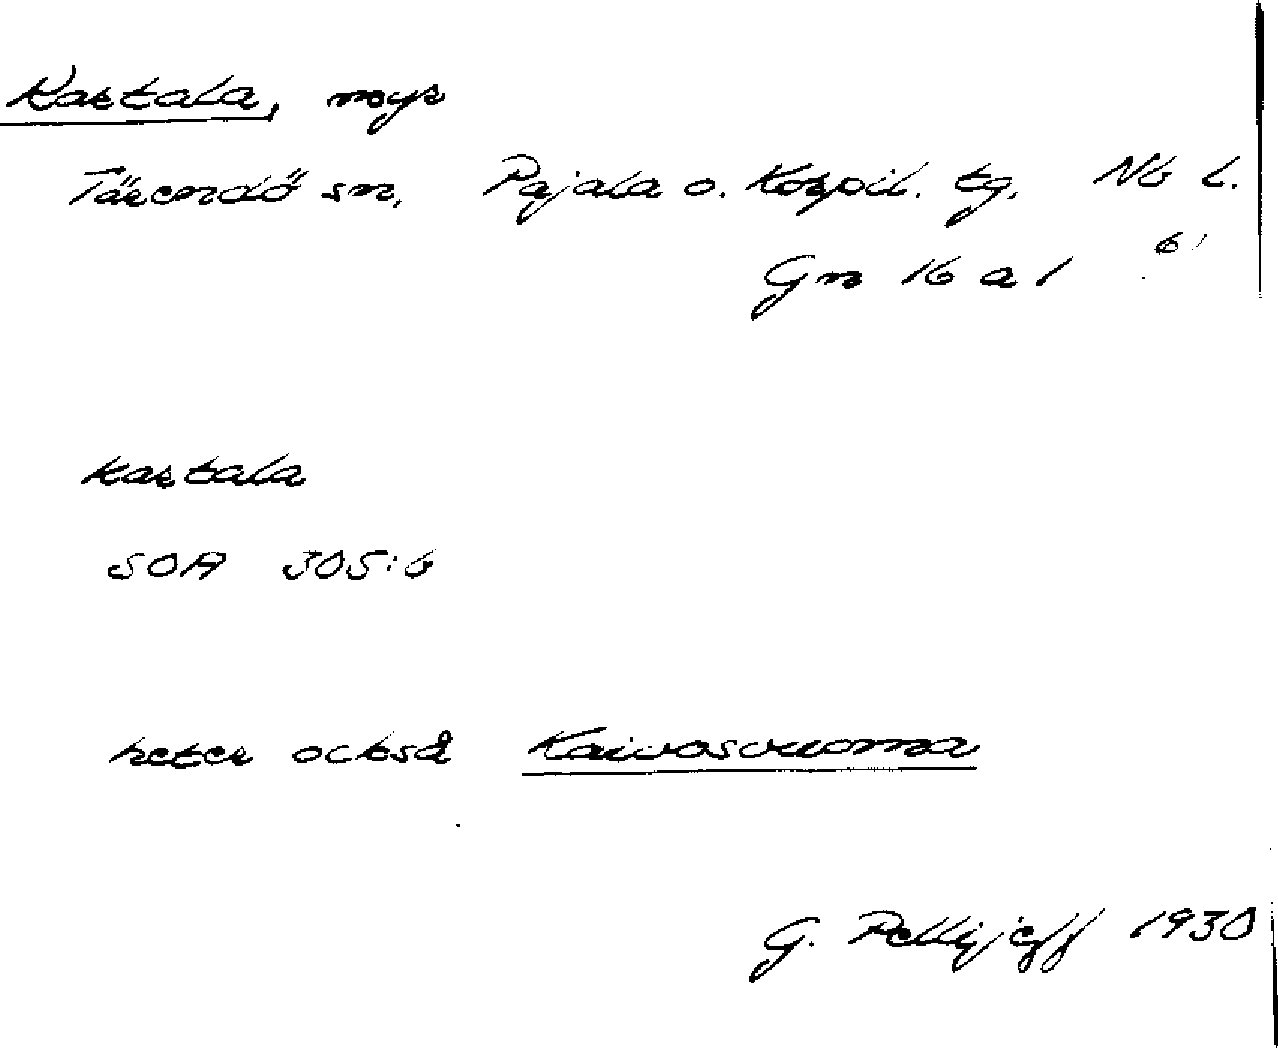 Kartala, myr
Tärendö sn. Pajala o. Korpil. tg. Nb L.
Gm 16 a 1 6'
kartala
SOA 305:6
heter också Kaivosvuoma
G. Pellijeff 1930